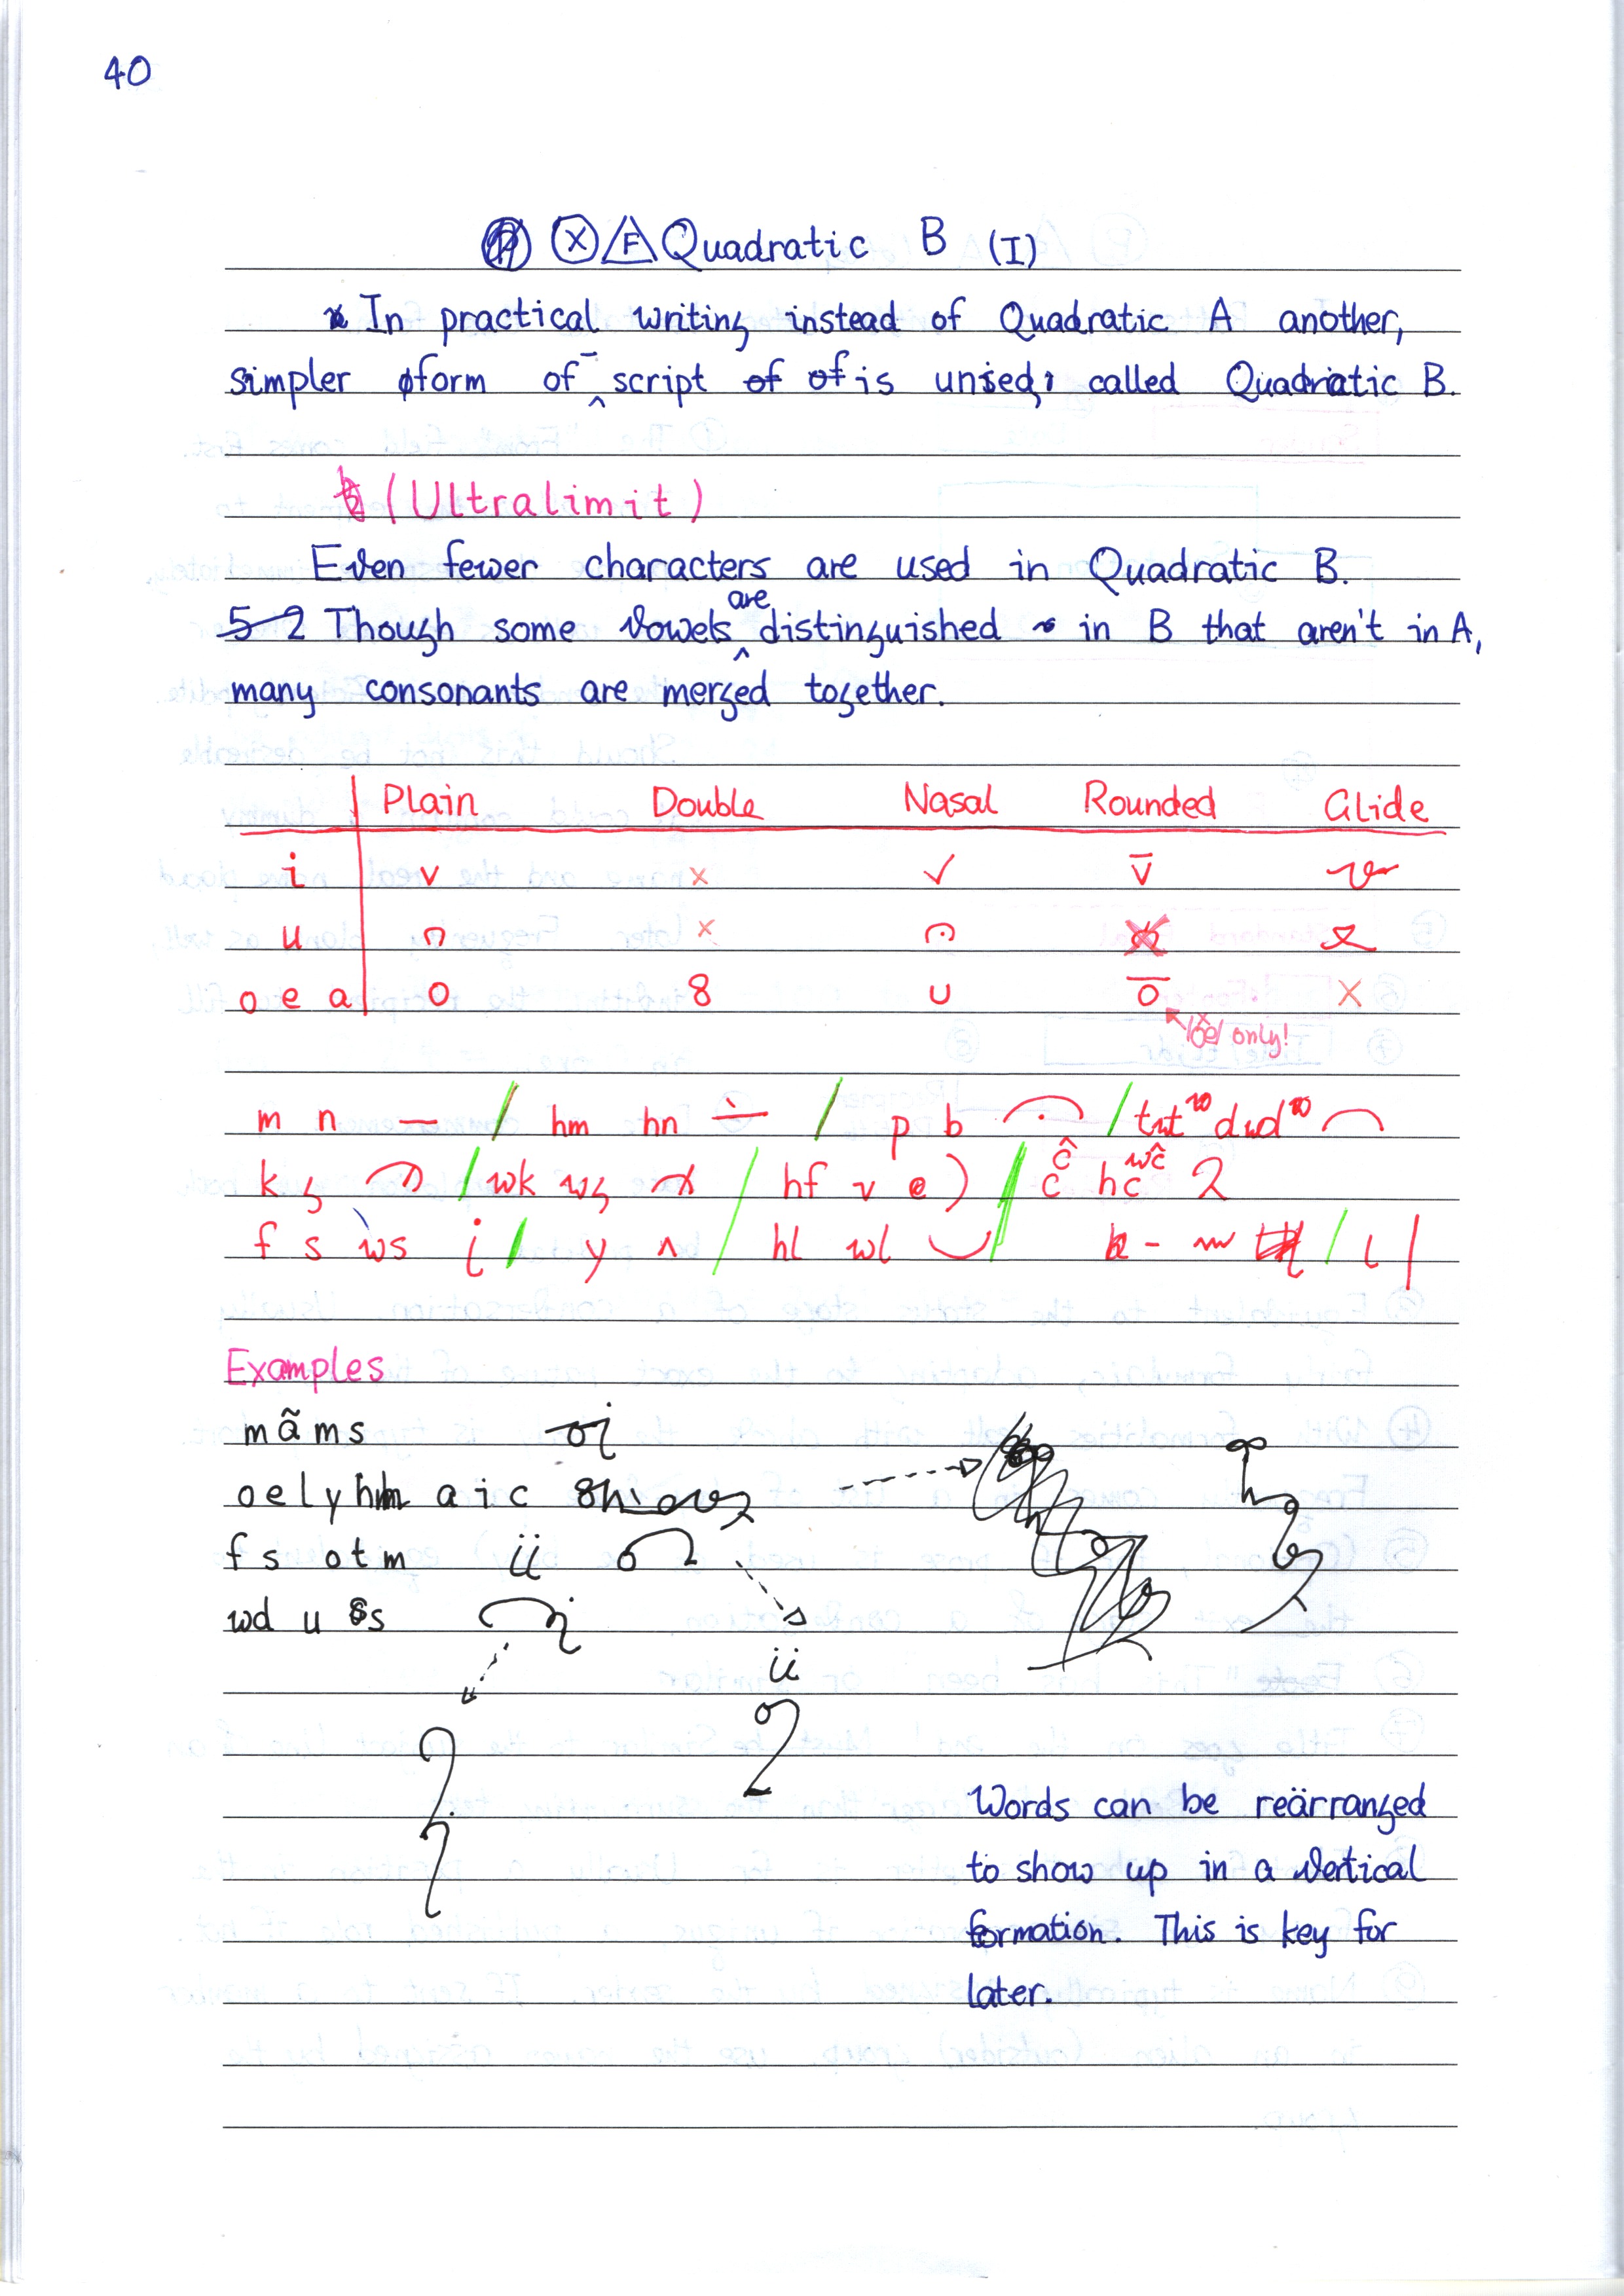 40
X F Quadratic B (I)
In practical writing instead of Quadratic A another,
simpler form of script is used, called Quadratic B.
(Ultralimit)
Even fewer characters are used in Quadratic B.
Though some vowels are distinguished in B that aren't in A,
many consonants are merged together.
Plain Double Nasal Rounded Glide
i v x ✓ v̄
u x
o e a o 8 u ō x
only!
m n — / hm hn ÷ / p b /
k g / wk wg / hf v / ĉ c hc wĉ 2
f s ws / y ʌ / hl wl / l |
Examples
mãms
oelyhm aic
fs otm
wd u s
Words can be reärranged
to show up in a vertical
formation. This is key for
later.